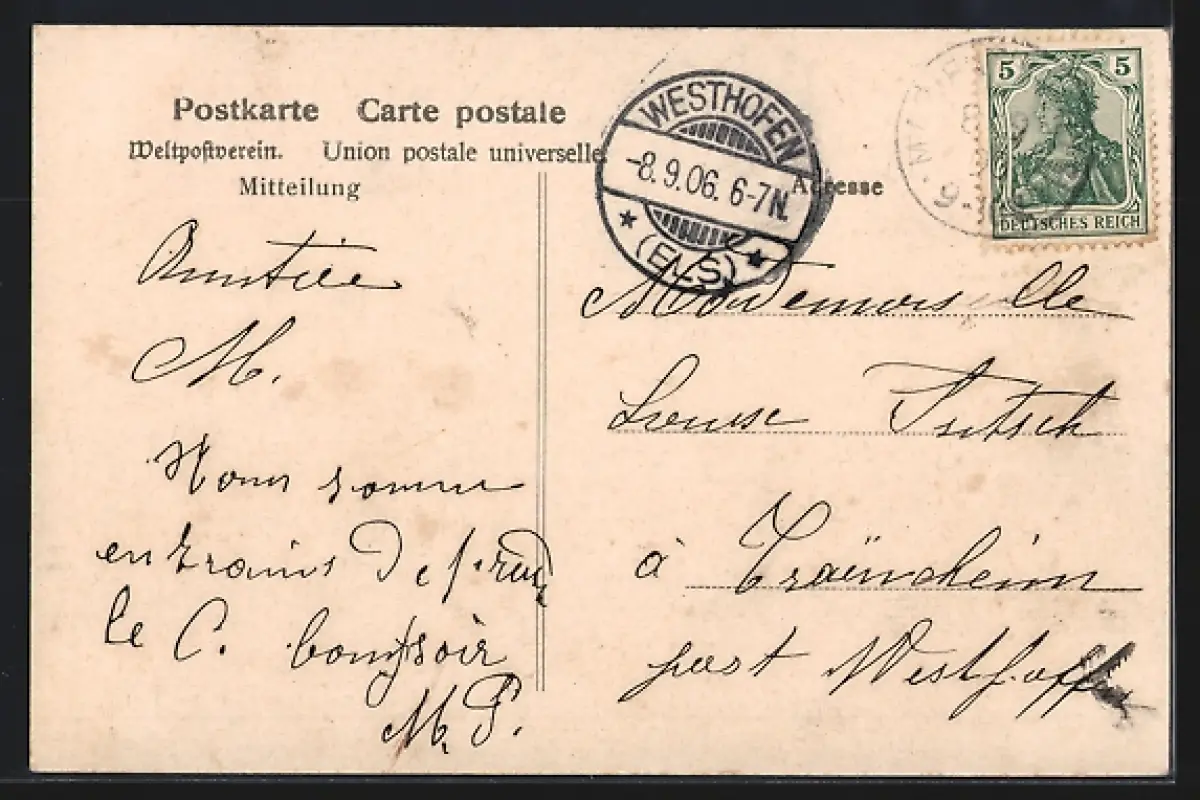 Postkarte Carte postale
Weltpostverein. Union postale universelle.
Mitteilung
Adresse
WESTHOFEN
-8.9.06. 6-7N.
(ELS)
5 5
DEUTSCHES REICH
M.
Nous somme
en trains de
le C. bonsoir
Mademoiselle
Louise
à Traënheim
post Westhoff